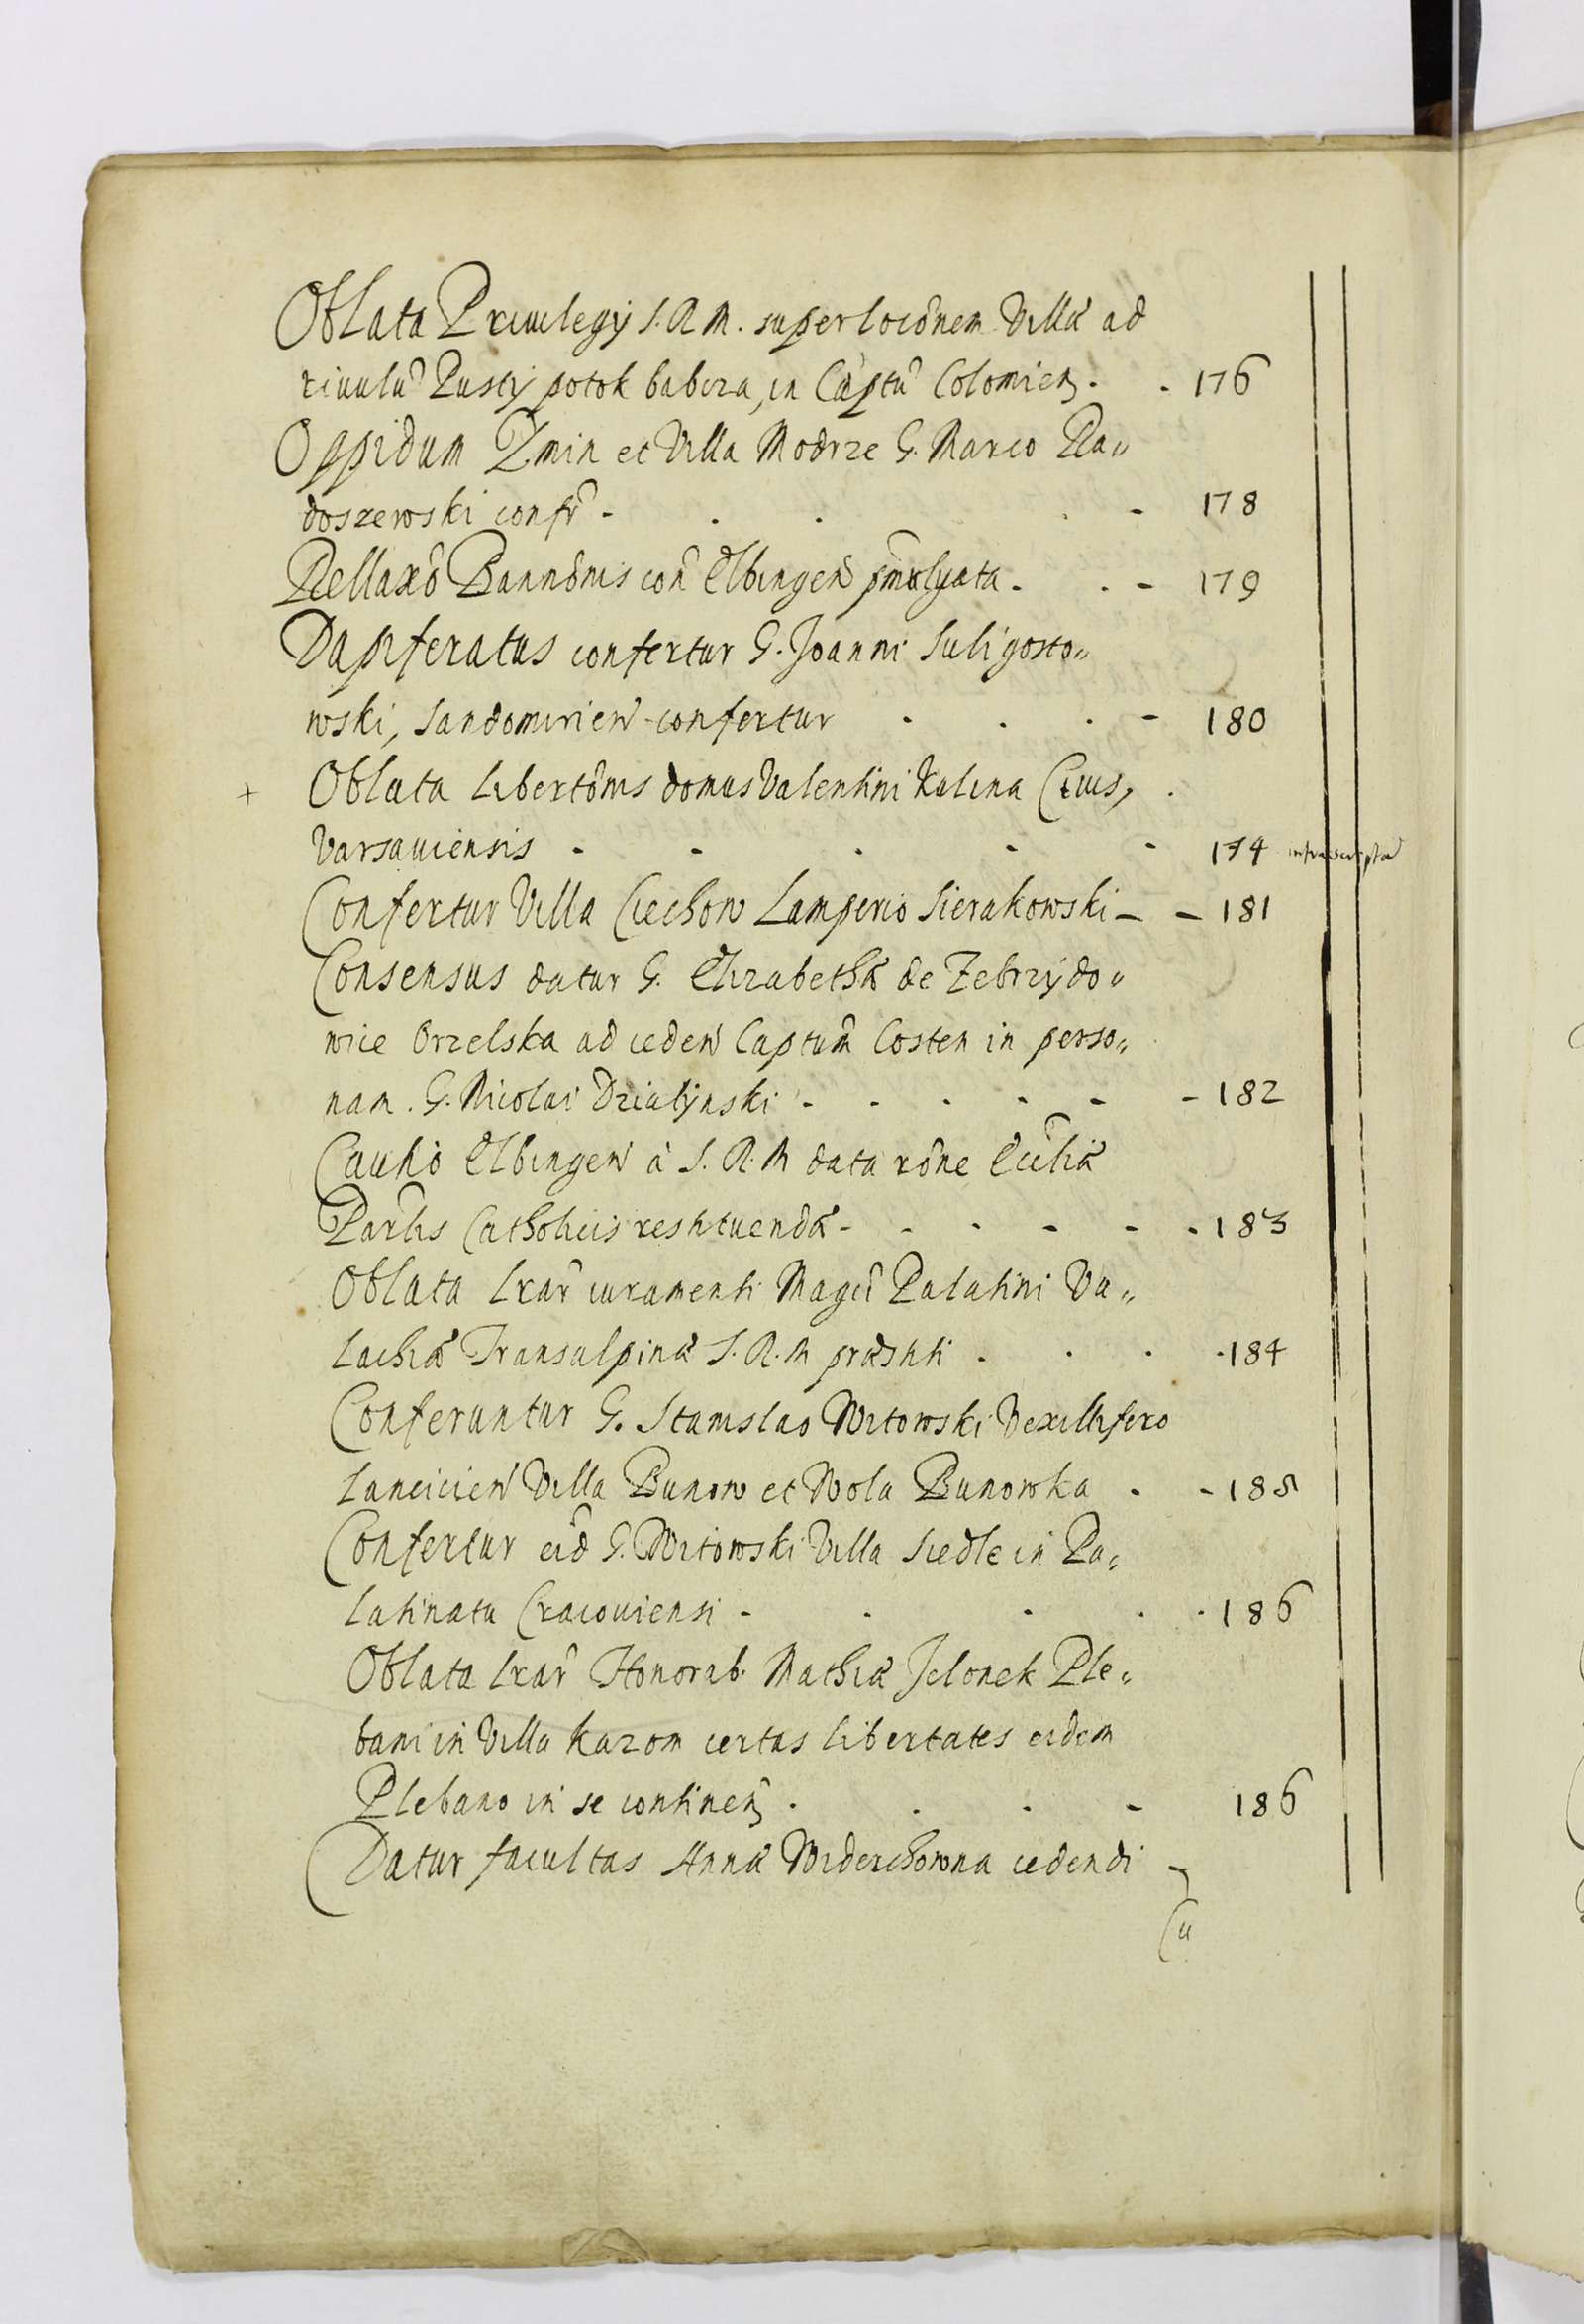 Oblata Priuilegij S. R. M. super locõnem Villæ ad
riuulũ Pusty potok babcza, in Captũ Colomieñ. . 176
Oppidum Zmin et Villa Modrze G. Marco Ra„
doszewski confr̃ - . . . - 178
Rellaxõ Bannõnis con Elbingeñ pmulgata . . - 179
Dapiferatus confertur G. Joanni Suligosto„
wski, Sandomirieñ confertur . . . - 180
+ Oblata Libertõnis domus Valentini Kalina Ciuis, .
Varsauiensis - - - - - 174 infrascripta
Confertur Villa Ciechow Lamperio Sierakowski - - 181
Consensus datur G. Elizabethæ de Zebrzydo„
wice Orzelska ad cedeñ Captum̃ Costen in perso„
nam. G. Nicolai Dzialynski - - - - - - 182
Cautio Elbingeñ à S. R. M data rõne Ecc̃liæ
Par̃lis Catholicis restituendæ - - - - - - 183
Oblata Lrar̃ iuramenti Magcĩ Palatini Va„
Lachiæ Transalpinæ S. R. M præstiti . . . . 184
Conferuntur G. Stanislao Witowski Vexillifero
Lancicieñ Villa Bunow et Wola Bunowka . - 185
Confertur eid̃ G. Witowski Villa Siedle in Pa„
latinatu Cracouiensi - . . . . 186
Oblata Lrar̃ Honorab. Mathiæ Jelonek Ple„
bani in Villa Kazom certas libertates eidem
Plebano in se continen̄ . . . - 186
Datur facultas Annæ Widerchowna cedendi -
Cu